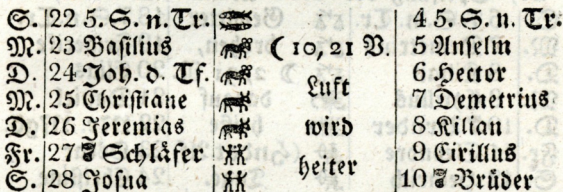 S. 22 5. S. n. Tr. 4 5. S. n. Tr.
M. 23 Basilius ☾ 10, 21 V. 5 Anselm
D. 24 Joh. d. Tf. Luft 6 Hector
M. 25 Christiane 7 Demetrius
D. 26 Jeremias wird 8 Kilian
Fr. 27 7 Schläfer heiter 9 Cirillus
S. 28 Josua 10 7 Brüder